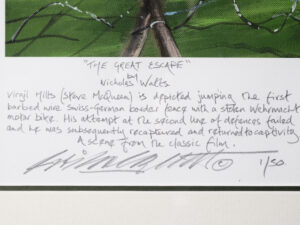 "THE GREAT ESCAPE"
by
Nicholas Watts
Virgil Hilts (Steve McQueen) is depicted jumping the first
barbed wire Swiss-German border fence with a stolen Wehrmacht
motor bike. His attempt at the second line of defences failed
and he was subsequently recaptured and returned to captivity.
A scene from the classic film.
© 1/50